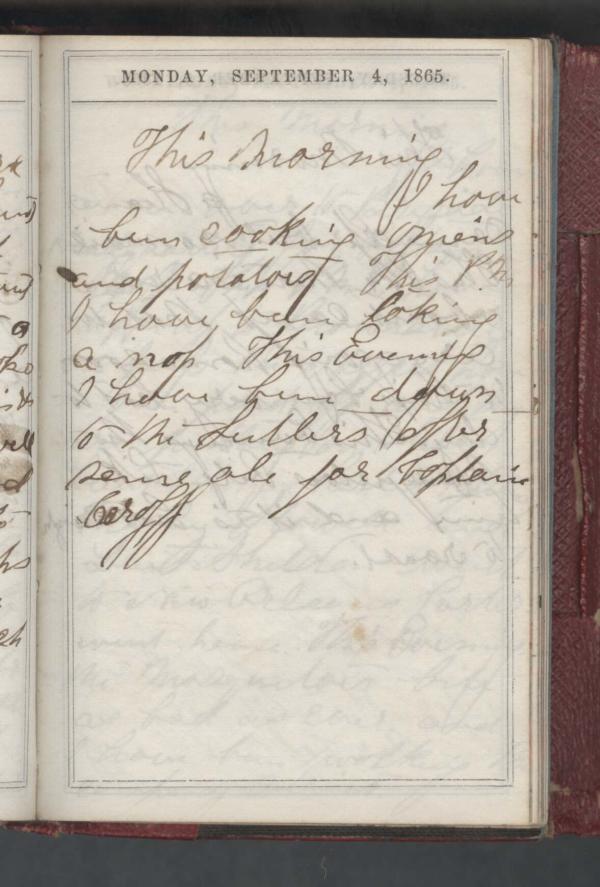 MONDAY, SEPTEMBER 4, 1865.
This Morning
I have
been cooking onions
and potatoes This P.M.
I have been
a nap This Evening
I have been down
to the Sutlers after
some ale for Captain